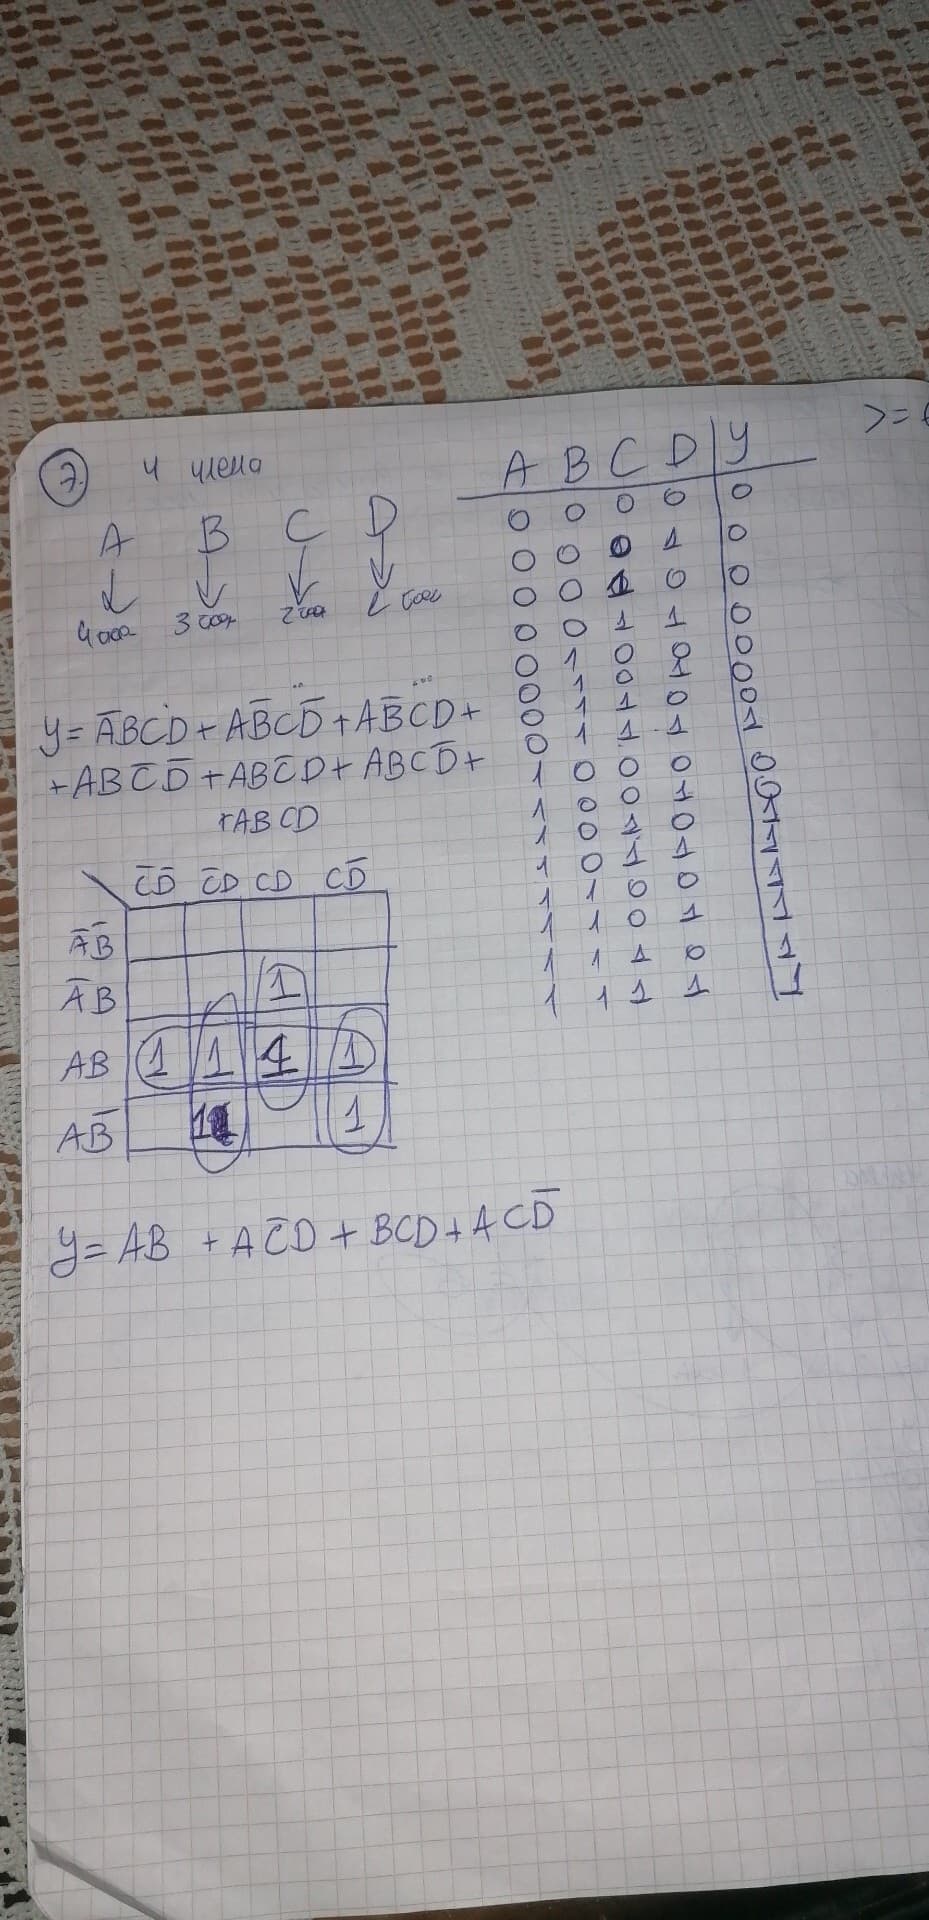 7. 4 члена
A B C D
y = A̅BCD + AB̅CD̅ + AB̅CD +
+ ABC̅D̅ + ABC̅D + ABCD̅ +
+ABCD
C̅D̅ C̅D CD CD̅
A̅B̅
A̅B 1
AB 1 1 1 1
AB̅ 1 1
y = AB + AC̅D + BCD + ACD̅
>=
A B C D y
0 0 0 0 0
0 0 0 1 0
0 0 1 0 0
0 0 1 1 0
0 1 0 0 0
0 1 0 1 0
0 1 1 0 0
0 1 1 1 1
1 0 0 0 0
1 0 0 1 0
1 0 1 0 1
1 0 1 1 1
1 1 0 0 1
1 1 0 1 1
1 1 1 0 1
1 1 1 1 1